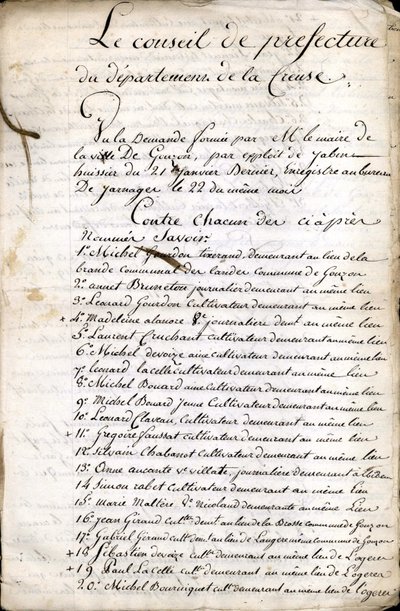 Le conseil de prefecture
du département de la Creuse.
Vu la Demande formée par Mr. le maire de
la ville De Gouzon, par exploit de Jabin
huissier du 21 Janvier Dernier, enregistré au bureau
De Jarnages le 22 du même mois
Contre chacun des ci après
Nommés Savoir.
1º Michel Gourdon tixerand Demeurant au lieu de la
brande Communal des landes Commune de Gouzon
2º annet Bruneton journalier demeurant au même lien
3º Leonard Gourdon Cultivateur demeurant au même lien
+ 4º Madeleine journaliere demt au même lien
5º Laurent Cruchant Cultivateur demeurant au même lien
6º Michel devoize aine Cultivateur demeurant au même lien
7º leonard lacelle cultivateur demeurant au même lien
8º Michel Bouard aine Cultivateur demeurant au même lien
9º Michel Bouard Jeune Cultivateur demeurant au même lien
10º Leonard Claveau, Cultivateur demeurant au même lien
+ 11º Gregoire Jaussat cultivateur demeurant au même lien
12º Silvain Chabannot Cultivateur demeurant au même lien
13º Anne aucante Ve villate, journalière demeurant
14 Simon rabet Cultivateur demeurant au même lien
15º Marie Maltère Ve Nicoland demeurante au même Lien
16º Jean Giraud Cultr. demt au lieu de la Brosse Commune de Gouzon
17º Gabriel Giraud cultr demt au lieu de Laugere même commune de Gouzon
+ 18 Sébastien devoize cultr demeurant au même lieu de Logerea
+ 19 Paul LaCelle cultr demeurant au même lieu de Logerea
20º Michel Bouringuet cultr demeurant au même lieu de Logerea